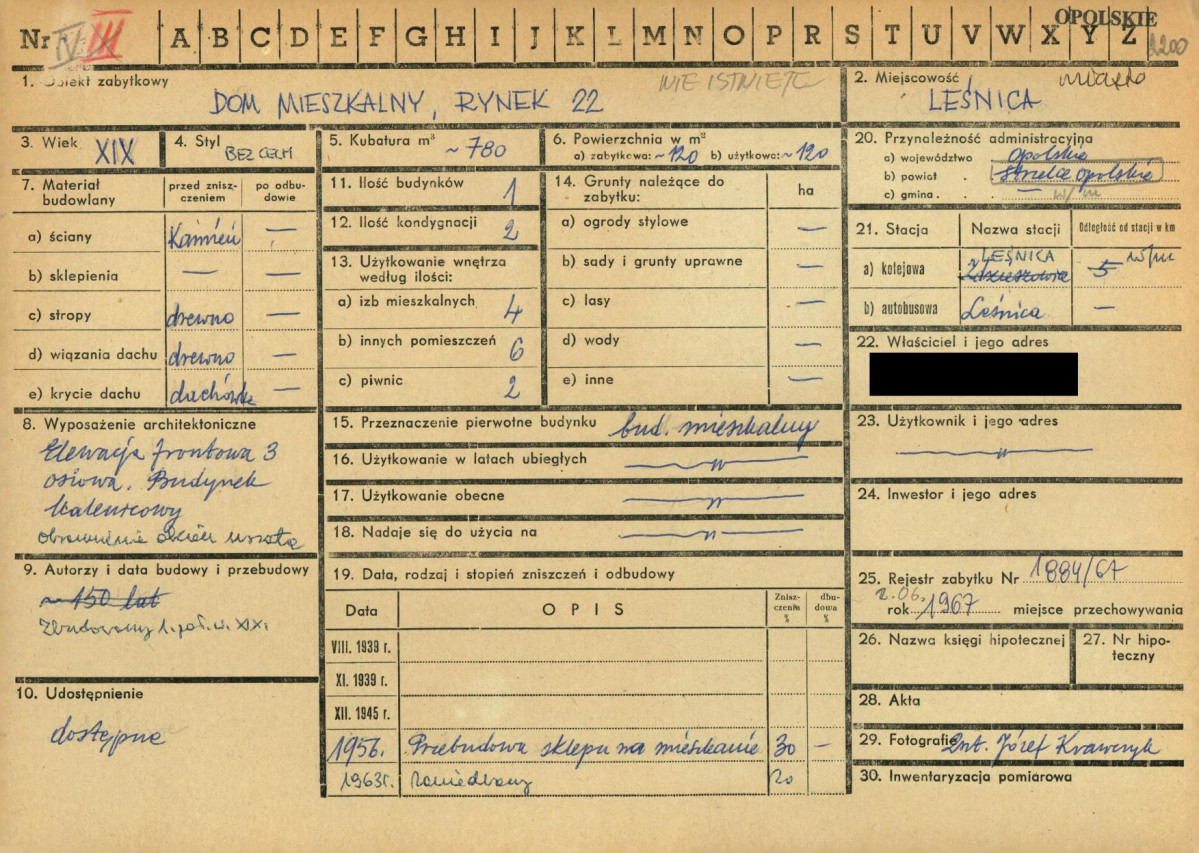 OPOLSKIE
Nr IV III A B C D E F G H I J K L M N O P R S T U V W X Y Z
1. Obiekt zabytkowy NIE ISTNIEJE
DOM MIESZKALNY, RYNEK 22
2. Miejscowość miasto
LEŚNICA
3. Wiek XIX
4. Styl BEZ CECH
5. Kubatura m³ ~ 780
6. Powierzchnia w m²
a) zabytkowa: ~120 b) użytkowa: ~120
7. Materiał budowlany
przed zniszczeniem
po odbudowie
a) ściany Kamień —
b) sklepienia — —
c) stropy drewno —
d) wiązania dachu drewno —
e) krycie dachu dachówka —
8. Wyposażenie architektoniczne
Elewacja frontowa 3
osiowa. Budynek
kalenicowy
obramienie okien uszate
9. Autorzy i data budowy i przebudowy
~ 150 lat
Zbudowany 1. poł. w. XIX.
10. Udostępnienie
dostępne
11. Ilość budynków 1
12. Ilość kondygnacji 2
13. Użytkowanie wnętrza
według ilości:
a) izb mieszkalnych 4
b) innych pomieszczeń 6
c) piwnic 2
14. Grunty należące do
zabytku:
ha
a) ogrody stylowe —
b) sady i grunty uprawne —
c) lasy —
d) wody —
e) inne —
15. Przeznaczenie pierwotne budynku bud. mieszkalny
16. Użytkowanie w latach ubiegłych —"—
17. Użytkowanie obecne —"—
18. Nadaje się do użycia na —"—
19. Data, rodzaj i stopień zniszczeń i odbudowy
Data OPIS Zniszczenia % dbudowa %
VIII. 1939 r.
XI. 1939 r.
XII. 1945 r.
1956. Przebudowa sklepu na mieszkanie 30 —
1963r. zaniedbany 20
20. Przynależność administracyjna
a) województwo opolskie
b) powiat Strzelce Opolskie
c) gmina — w/m
21. Stacja Nazwa stacji Odległość od stacji w km
LEŚNICA w/m
a) kolejowa Zdzieszowice 5
b) autobusowa Leśnica —
22. Właściciel i jego adres
23. Użytkownik i jego adres
—"—
24. Inwestor i jego adres
25. Rejestr zabytku Nr 1884/67
2.06.
rok 1967 miejsce przechowywania
26. Nazwa księgi hipotecznej
27. Nr hipoteczny
28. Akta
29. Fotografie Int. Józef Krawczyk
30. Inwentaryzacja pomiarowa